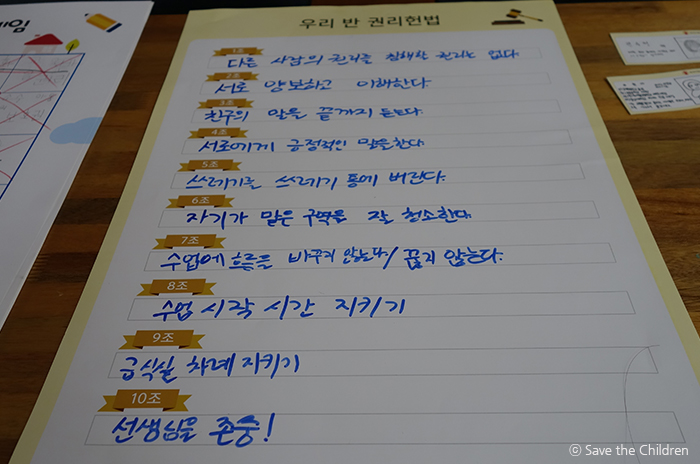 게임
우리 반 권리헌법
1조
다른 사람의 권리를 침해할 권리는 없다.
2조
서로 양보하고 이해한다.
3조
친구의 말을 끝까지 듣는다.
4조
서로에게 긍정적인 말을한다.
5조
쓰레기를 쓰레기 통에 버린다.
6조
자기가 맡은 구역을 잘 청소한다.
7조
수업에 흐름을 바꾸지 않는다/ 끊지 않는다.
8조
수업 시작 시간 지키기
9조
급식실 차례 지키기
10조
선생님을 존중!
ⓒ Save the Children